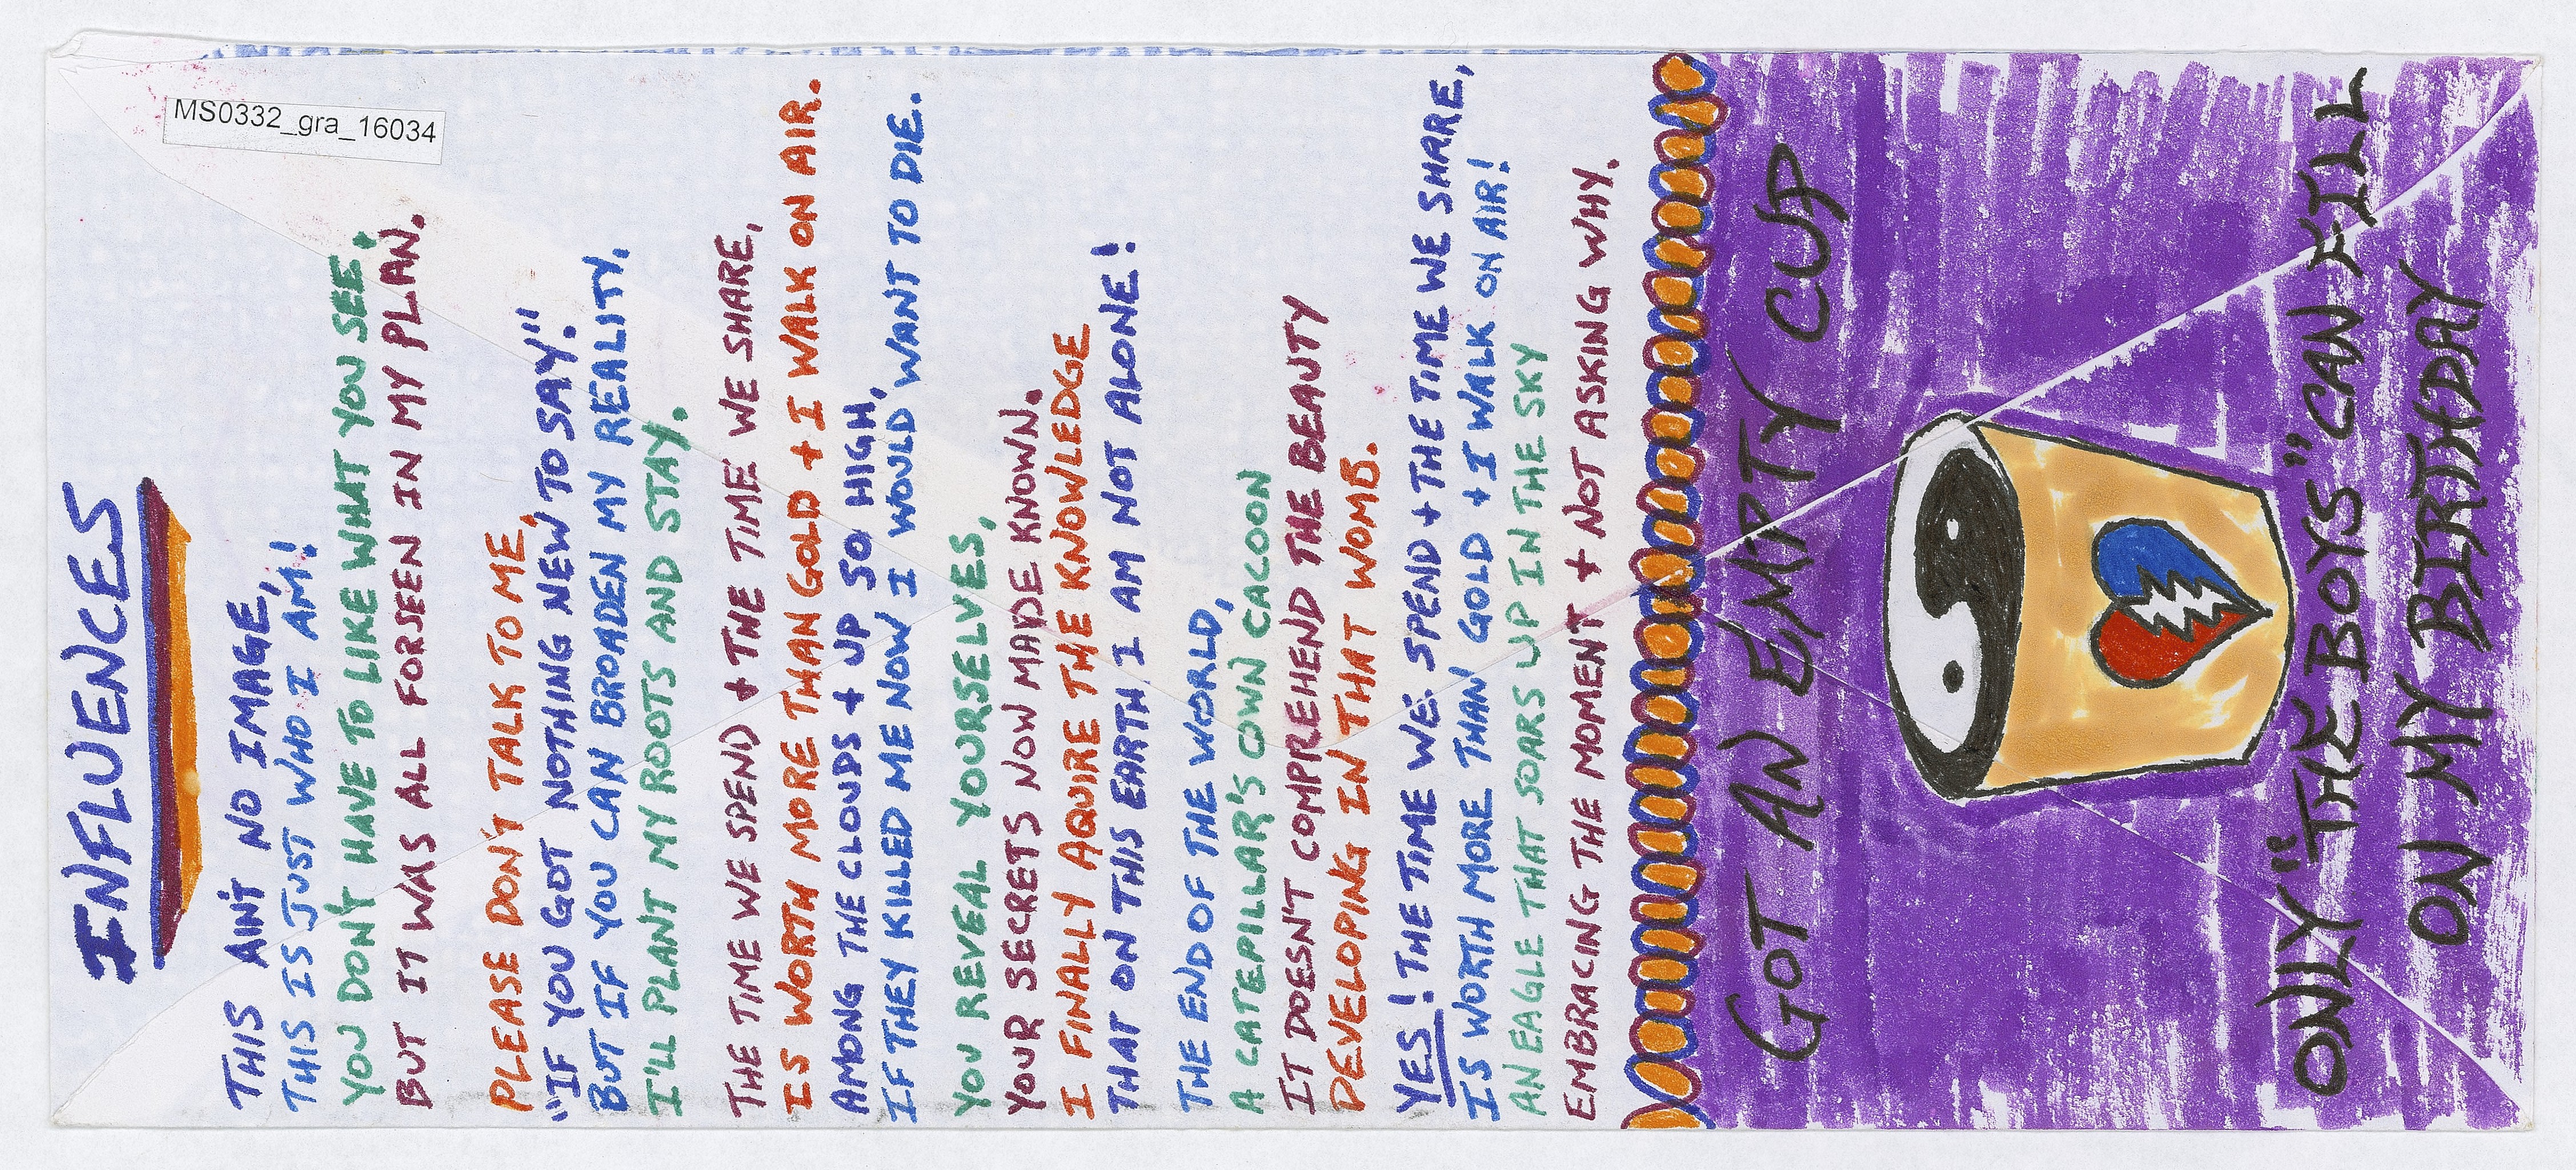 MS0332_gra_16034
INFLUENCES
THIS AIN'T NO IMAGE,
THIS IS JUST WHO I AM!
YOU DON'T HAVE TO LIKE WHAT YOU SEE.
BUT IT WAS ALL FORSEEN IN MY PLAN.
PLEASE DON'T TALK TO ME,
"IF YOU GOT NOTHING NEW TO SAY".
BUT IF YOU CAN BROADEN MY REALITY.
I'LL PLANT MY ROOTS AND STAY.
THE TIME WE SPEND + THE TIME WE SHARE,
IS WORTH MORE THAN GOLD + I WALK ON AIR.
AMONG THE CLOUDS + UP SO HIGH,
IF THEY KILLED ME NOW I WOULD WANT TO DIE.
YOU REVEAL YOURSELVES,
YOUR SECRETS NOW MADE KNOWN.
I FINALLY AQUIRE THE KNOWLEDGE
THAT ON THIS EARTH I AM NOT ALONE!
THE END OF THE WORLD,
A CATEPILLAR'S OWN CACOON
IT DOESN'T COMPREHEND THE BEAUTY
DEVELOPING IN THAT WOMB.
YES! THE TIME WE SPEND + THE TIME WE SHARE,
IS WORTH MORE THAN GOLD + I WALK ON AIR!
AN EAGLE THAT SOARS UP IN THE SKY
EMBRACING THE MOMENT + NOT ASKING WHY.
GOT AN EMPTY CUP
ONLY "THE BOYS" CAN FILL
ON MY BIRTHDAY